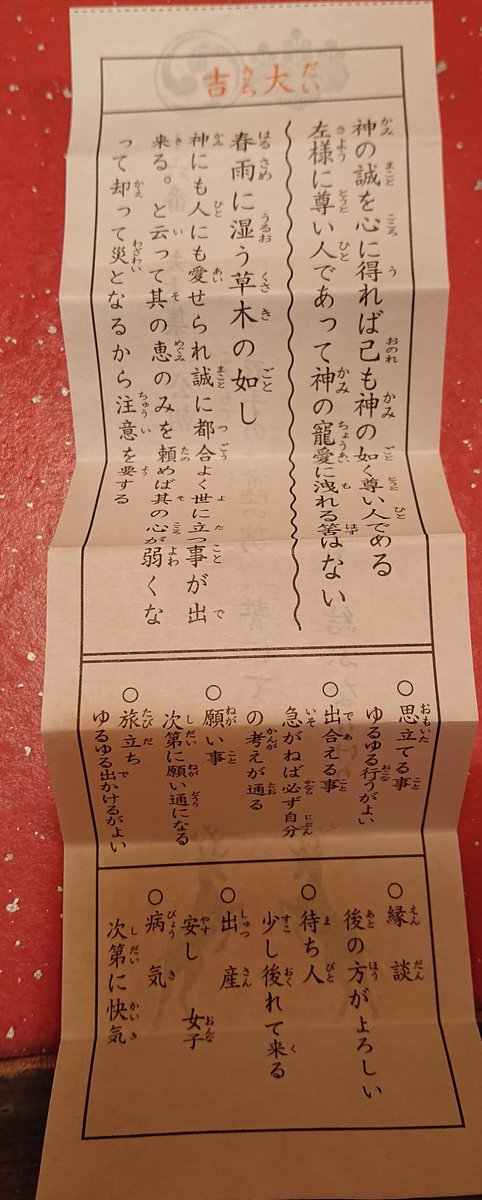 大吉
神の誠を心に得れば己も神の如く尊い人である
左様に尊い人であって神の寵愛に洩れる筈はない
春雨に湿う草木の如し
神にも人にも愛せられ誠に都合よく世に立つ事が出
来る。と云って其の恵のみを頼めば其の心が弱くな
って却って災となるから注意を要する
○思立てる事
ゆるゆる行うがよい
○出合える事
急がねば必ず自分
の考えが通る
○願い事
次第に願い通になる
○旅立ち
ゆるゆる出かけるがよい
○縁談
後の方がよろしい
○待ち人
少し後れて来る
○出産
安し 女子
○病気
次第に快気